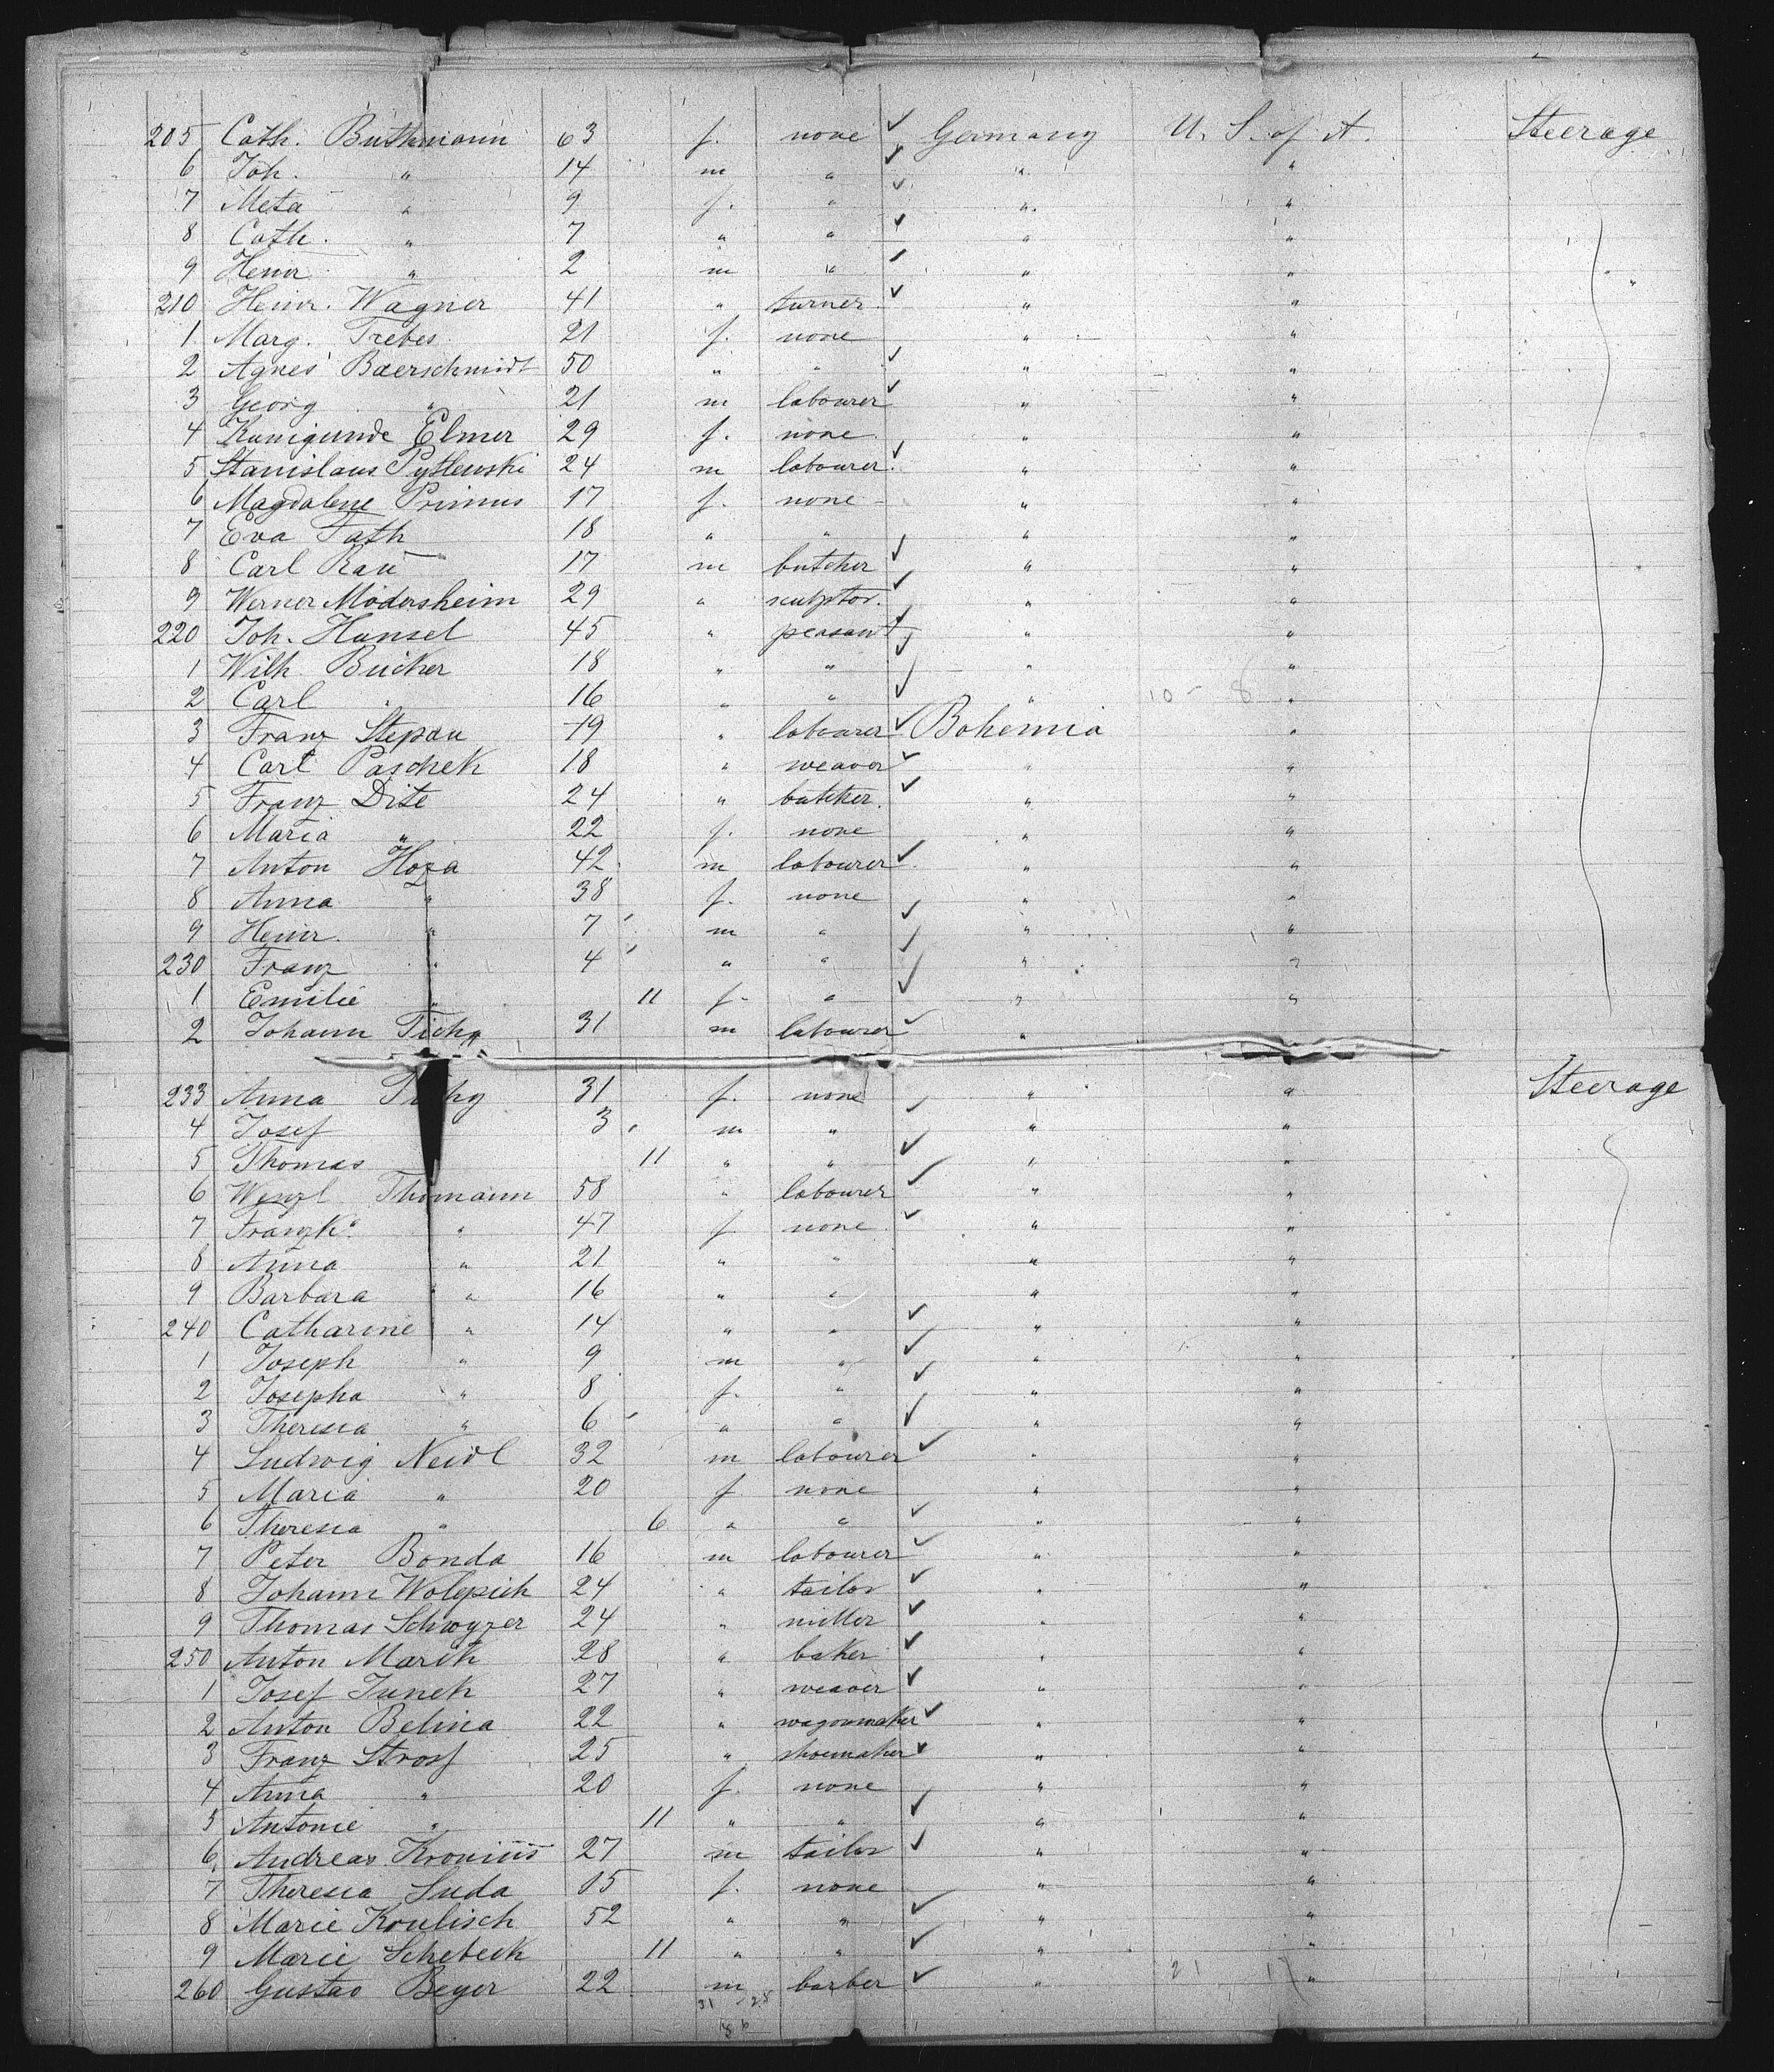 205 Cath. Buthmann 63 f. none ✓ Germany U. S. of A. Steerage
6 Joh. " 14 m " ✓ " "
7 Meta " 9 f. " ✓ " "
8 Cath. " 7 " " ✓ " "
9 Heinr. " 2 m " ✓ " " "
210 Heinr. Wagner 41 " turner ✓ " "
1 Marg. Trebes 21 f. none " "
2 Agnes Baerschmidt 50 " " ✓ " "
3 Georg " 21 m labourer ✓ " "
4 Kunigunde Elmer 29 f. none " "
5 Stanislaus Pytlewski 24 m labourer ✓ " "
6 Magdalene Primus 17 f. none " "
7 Eva Fath 18 " " " "
8 Carl Rau 17 m butcher ✓ " "
9 Werner Mödersheim 29 " sculptor ✓ " "
220 Joh. Hansel 45 " peasant ✓ " "
1 Wilh. Bücker 18 " " ✓ " "
2 Carl " 16 " " ✓ " 10 - 8 "
3 Franz Stepan 19 " labourer ✓ Bohemia "
4 Carl Paschek 18 " weaver ✓ " "
5 Franz Dite 24 " butcher ✓ " "
6 Maria " 22 f. none " "
7 Anton Hoza 42 m labourer ✓ " "
8 Anna " 38 f. none " "
9 Heinr. " 7 m " ✓ " "
230 Franz " 4 " " ✓ " "
1 Emilie " 11 f. " ✓ " "
2 Johann Tichy 31 m labourer ✓ "
233 Anna Tichy 31 f. none " " Steerage
4 Josef 3 m " ✓ " "
5 Thomas 11 " " ✓ " "
6 Wenzl Thomann 58 " labourer ✓ " "
7 Franzka " 47 f none ✓ " "
8 Anna " 21 " " " "
9 Barbara " 16 " " " "
240 Catharine " 14 " " ✓ " "
1 Joseph " 9 m " ✓ " "
2 Josepha " 8 f. " ✓ " "
3 Theresia " 6 " " ✓ " "
4 Ludwig Neidl 32 m labourer ✓ " "
5 Maria " 20 f none " "
6 Theresia " 6 " " ✓ " "
7 Peter Bonda 16 m labourer ✓ " "
8 Johann 24 " tailor ✓ " "
9 Thomas 24 " miller ✓ " "
250 Anton Marik 28 " baker ✓ " "
1 Josef Junek 27 " weaver ✓ " "
2 Anton Belina 22 " wagonmaker ✓ " "
3 Franz 25 " shoemaker ✓ " "
4 Anna " 20 f. none " "
5 Antonie " 11 " " ✓ " "
6 Andreas 27 m tailor ✓ " "
7 Theresia Suda 15 f. none " "
8 Marie Koulisch 52 " " ✓ " "
9 Marie Schebeck 11 " " ✓ " "
260 Gustav Beyer 22 m barber ✓ " 21 "
31 28